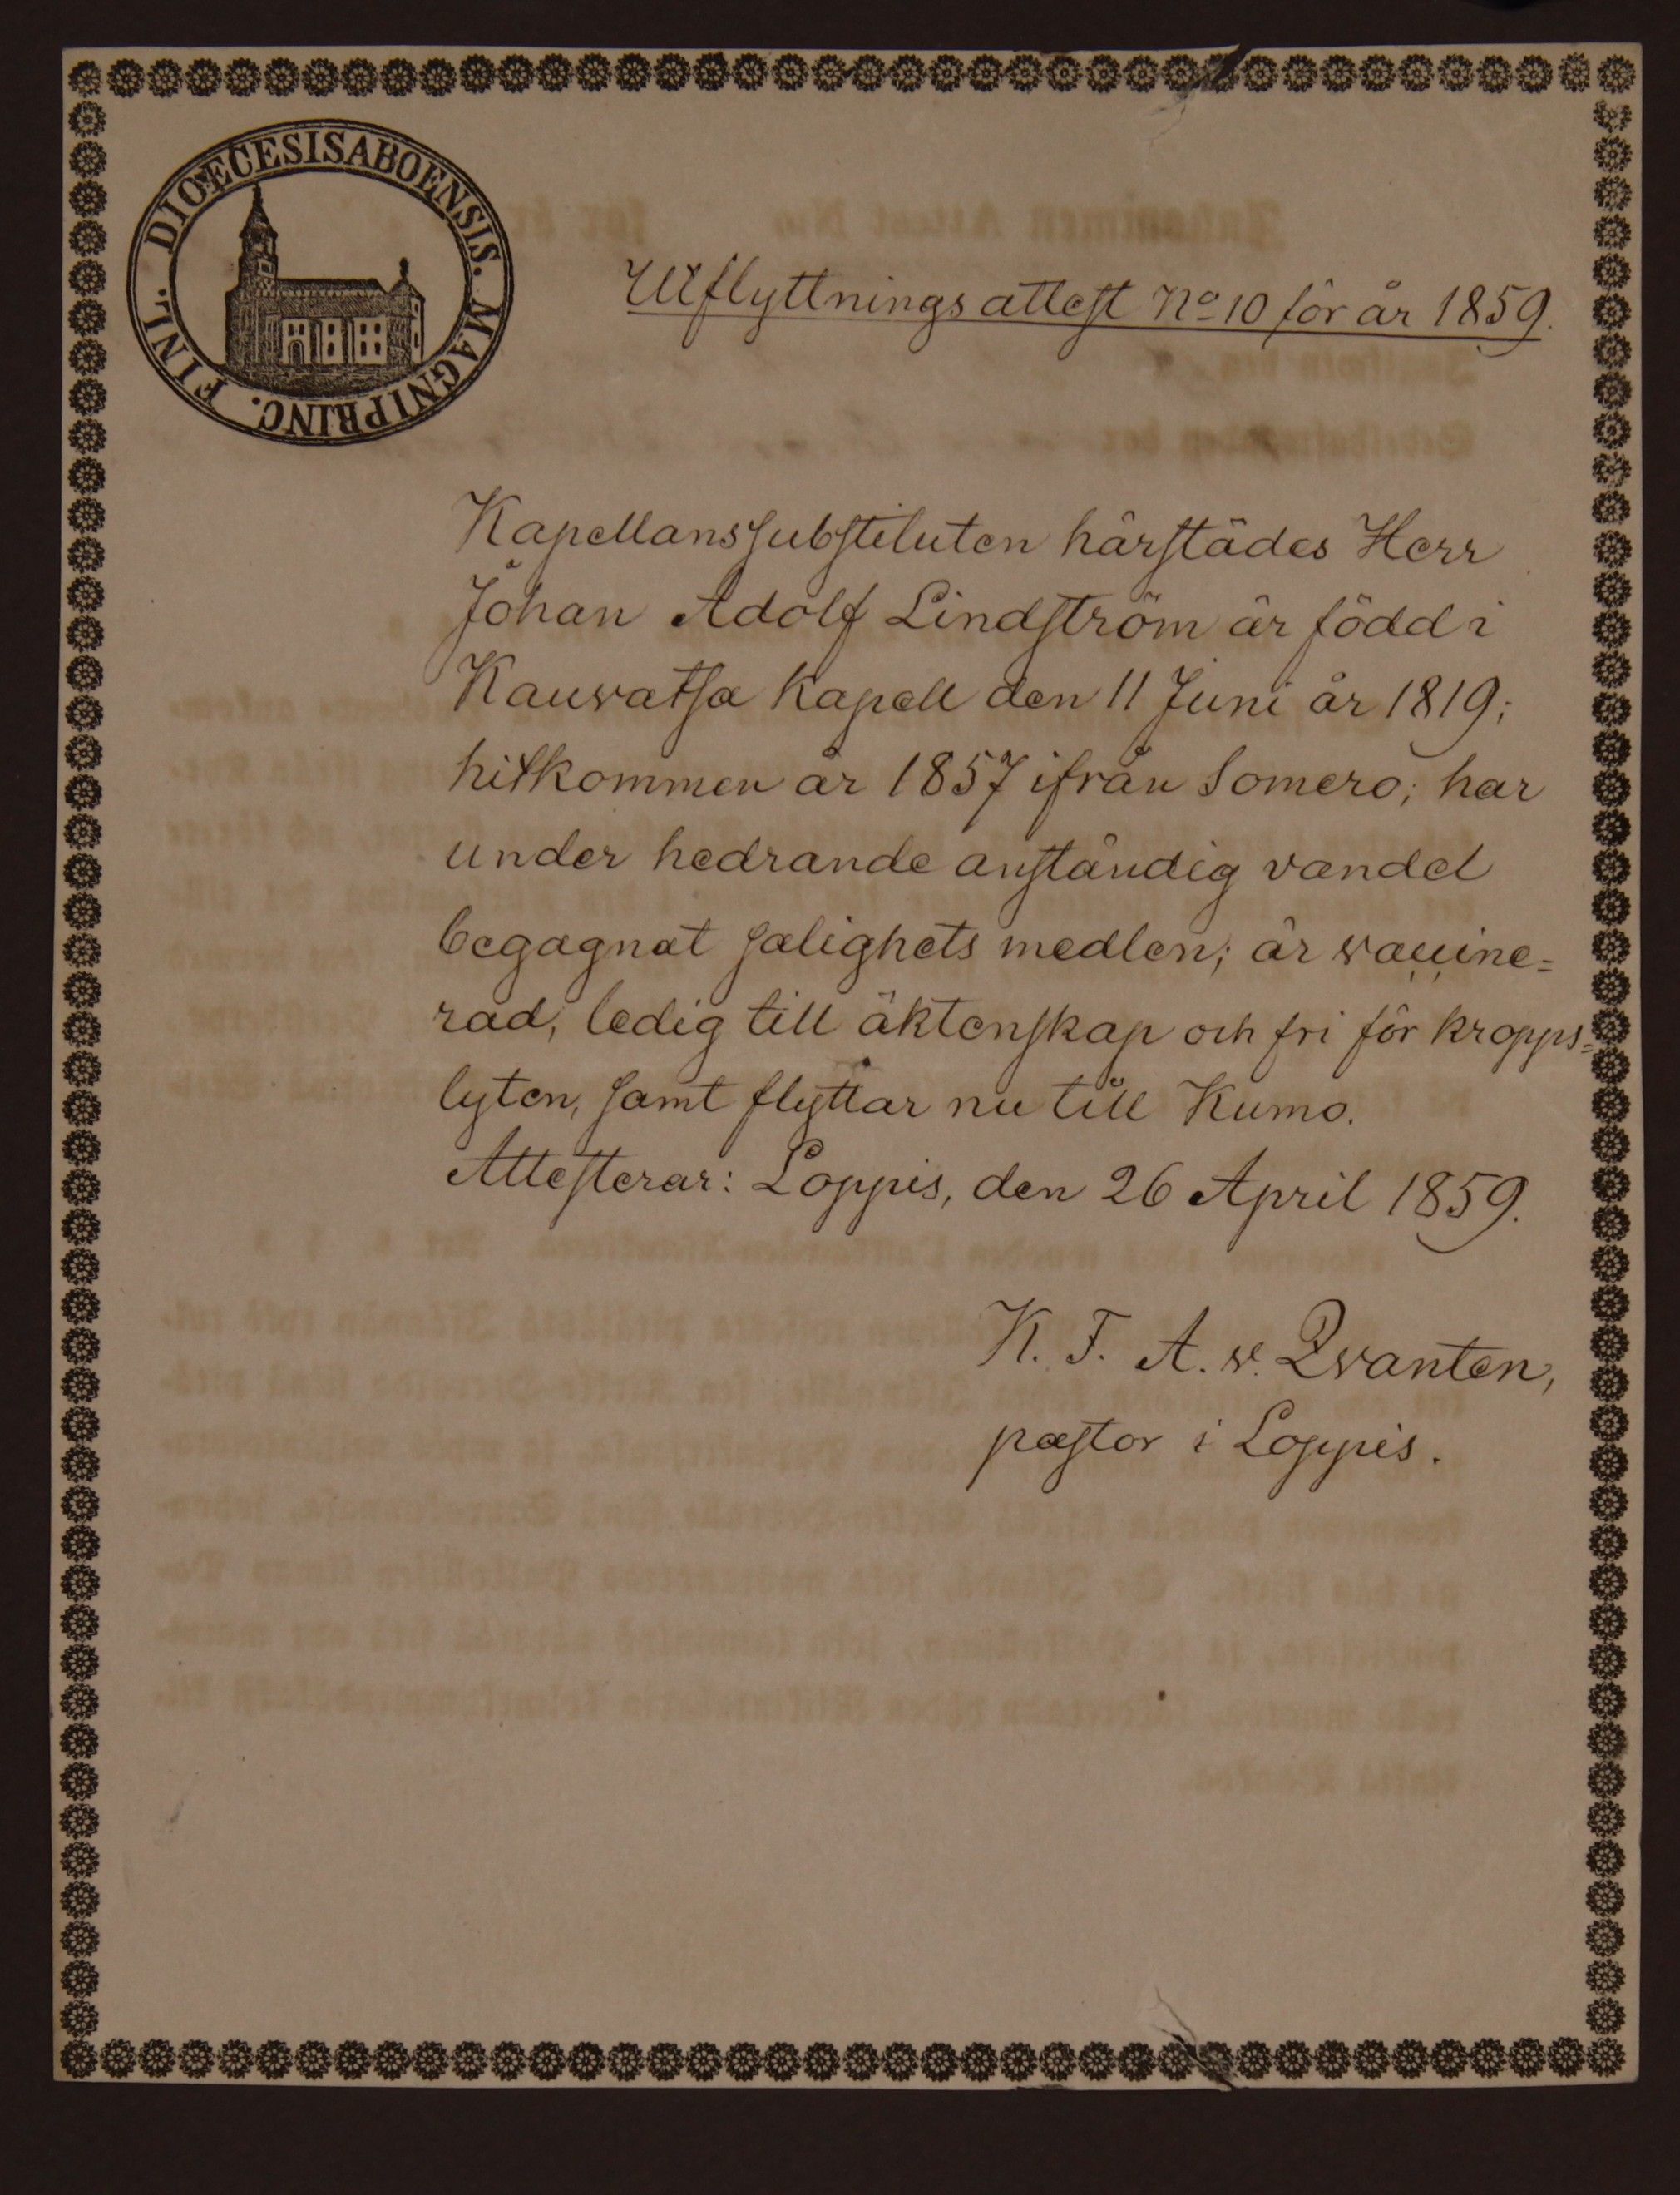 DIOECESIS ABOENSIS. MAGNI PRINC. FINL.
Utflyttnings attest No 10 för år 1859.
Kapellanssubstituten härstädes Herr
Johan Adolf Lindström är född i
Kauvatsa Kapell den 11 Juni år 1819;
hitkommen år 1857 ifrån Somero; har
under hedrande anständig vandel
begagnat salighets medlen; är vaccine=
rad, ledig till äktenskap och fri för kropps=
lyten, samt flyttar nu till Kumo.
Attesterar: Loppis, den 26 April 1859.
K. F. A. v. Qvanten,
pastor i Loppis.